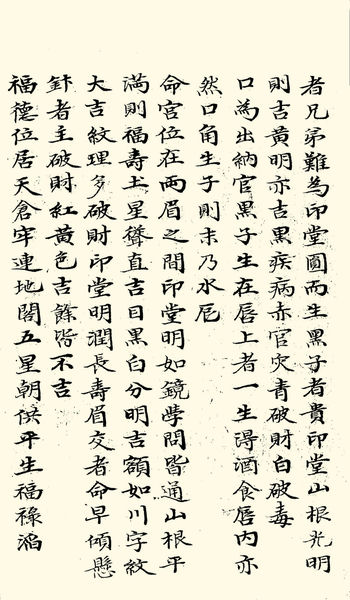 者兄弟難為印堂圓而生黑子者貴印堂山根光明
則吉黄明亦吉黑疾病赤官灾青破財白破毒
口為出納官黑子生在唇上者一生得酒食唇内亦
然口角生子則未乃水厄
命宫位在兩眉之間印堂明如鏡學問皆通山根平
滿則福壽土星聳直吉目黑白分明吉額如川字紋
大吉紋理多破財印堂明潤長壽眉交者命早傾懸
針者主破財紅黄色吉餘皆不吉
福德位居天倉牢連地閣五星朝供平生福禄滔